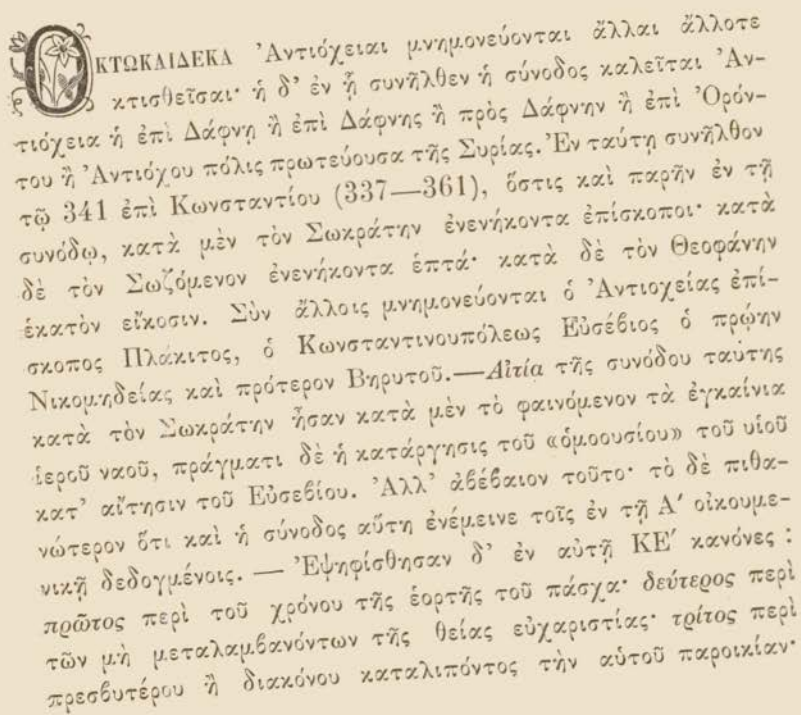 ΟΚΤΩΚΑΙΔΕΚΑ Ἀντιόχειαι μνημονεύονται ἄλλαι ἄλλοτε
κτισθεῖσαι· ἡ δ’ ἐν ᾗ συνῆλθεν ἡ σύνοδος καλεῖται Ἀν-
τιόχεια ἡ ἐπὶ Δάφνῃ ἢ ἐπὶ Δάφνης ἢ πρὸς Δάφνην ἢ ἐπὶ Ὀρόν-
του ἢ Ἀντιόχου πόλις πρωτεύουσα τῆς Συρίας. Ἐν ταύτῃ συνῆλθον
τῷ 341 ἐπὶ Κωνσταντίου (337—361), ὅστις καὶ παρῆν ἐν τῇ
συνόδῳ, κατὰ μὲν τὸν Σωκράτην ἐνενήκοντα ἐπίσκοποι· κατὰ
δὲ τὸν Σωζόμενον ἐνενήκοντα ἑπτά· κατὰ δὲ τὸν Θεοφάνην
ἑκατὸν εἴκοσιν. Σὺν ἄλλοις μνημονεύονται ὁ Ἀντιοχείας ἐπί-
σκοπος Πλάκιτος, ὁ Κωνσταντινουπόλεως Εὐσέβιος ὁ πρῴην
Νικομηδείας καὶ πρότερον Βηρυτοῦ.—Αἰτία τῆς συνόδου ταύτης
κατὰ τὸν Σωκράτην ἦσαν κατὰ μὲν τὸ φαινόμενον τὰ ἐγκαίνια
ἱεροῦ ναοῦ, πράγματι δὲ ἡ κατάργησις τοῦ «ὁμοουσίου» τοῦ υἱοῦ
κατ’ αἴτησιν τοῦ Εὐσεβίου. Ἀλλ’ ἀβέβαιον τοῦτο· τὸ δὲ πιθα-
νώτερον ὅτι καὶ ἡ σύνοδος αὕτη ἐνέμεινε τοῖς ἐν τῇ Α΄ οἰκουμε-
νικῇ δεδογμένοις. — Ἐψηφίσθησαν δ’ ἐν αὐτῇ ΚΕ΄ κανόνες :
πρῶτος περὶ τοῦ χρόνου τῆς ἑορτῆς τοῦ πάσχα· δεύτερος περὶ
τῶν μὴ μεταλαμβανόντων τῆς θείας εὐχαριστίας· τρίτος περὶ
πρεσβυτέρου ἢ διακόνου καταλιπόντος τὴν αὑτοῦ παροικίαν·